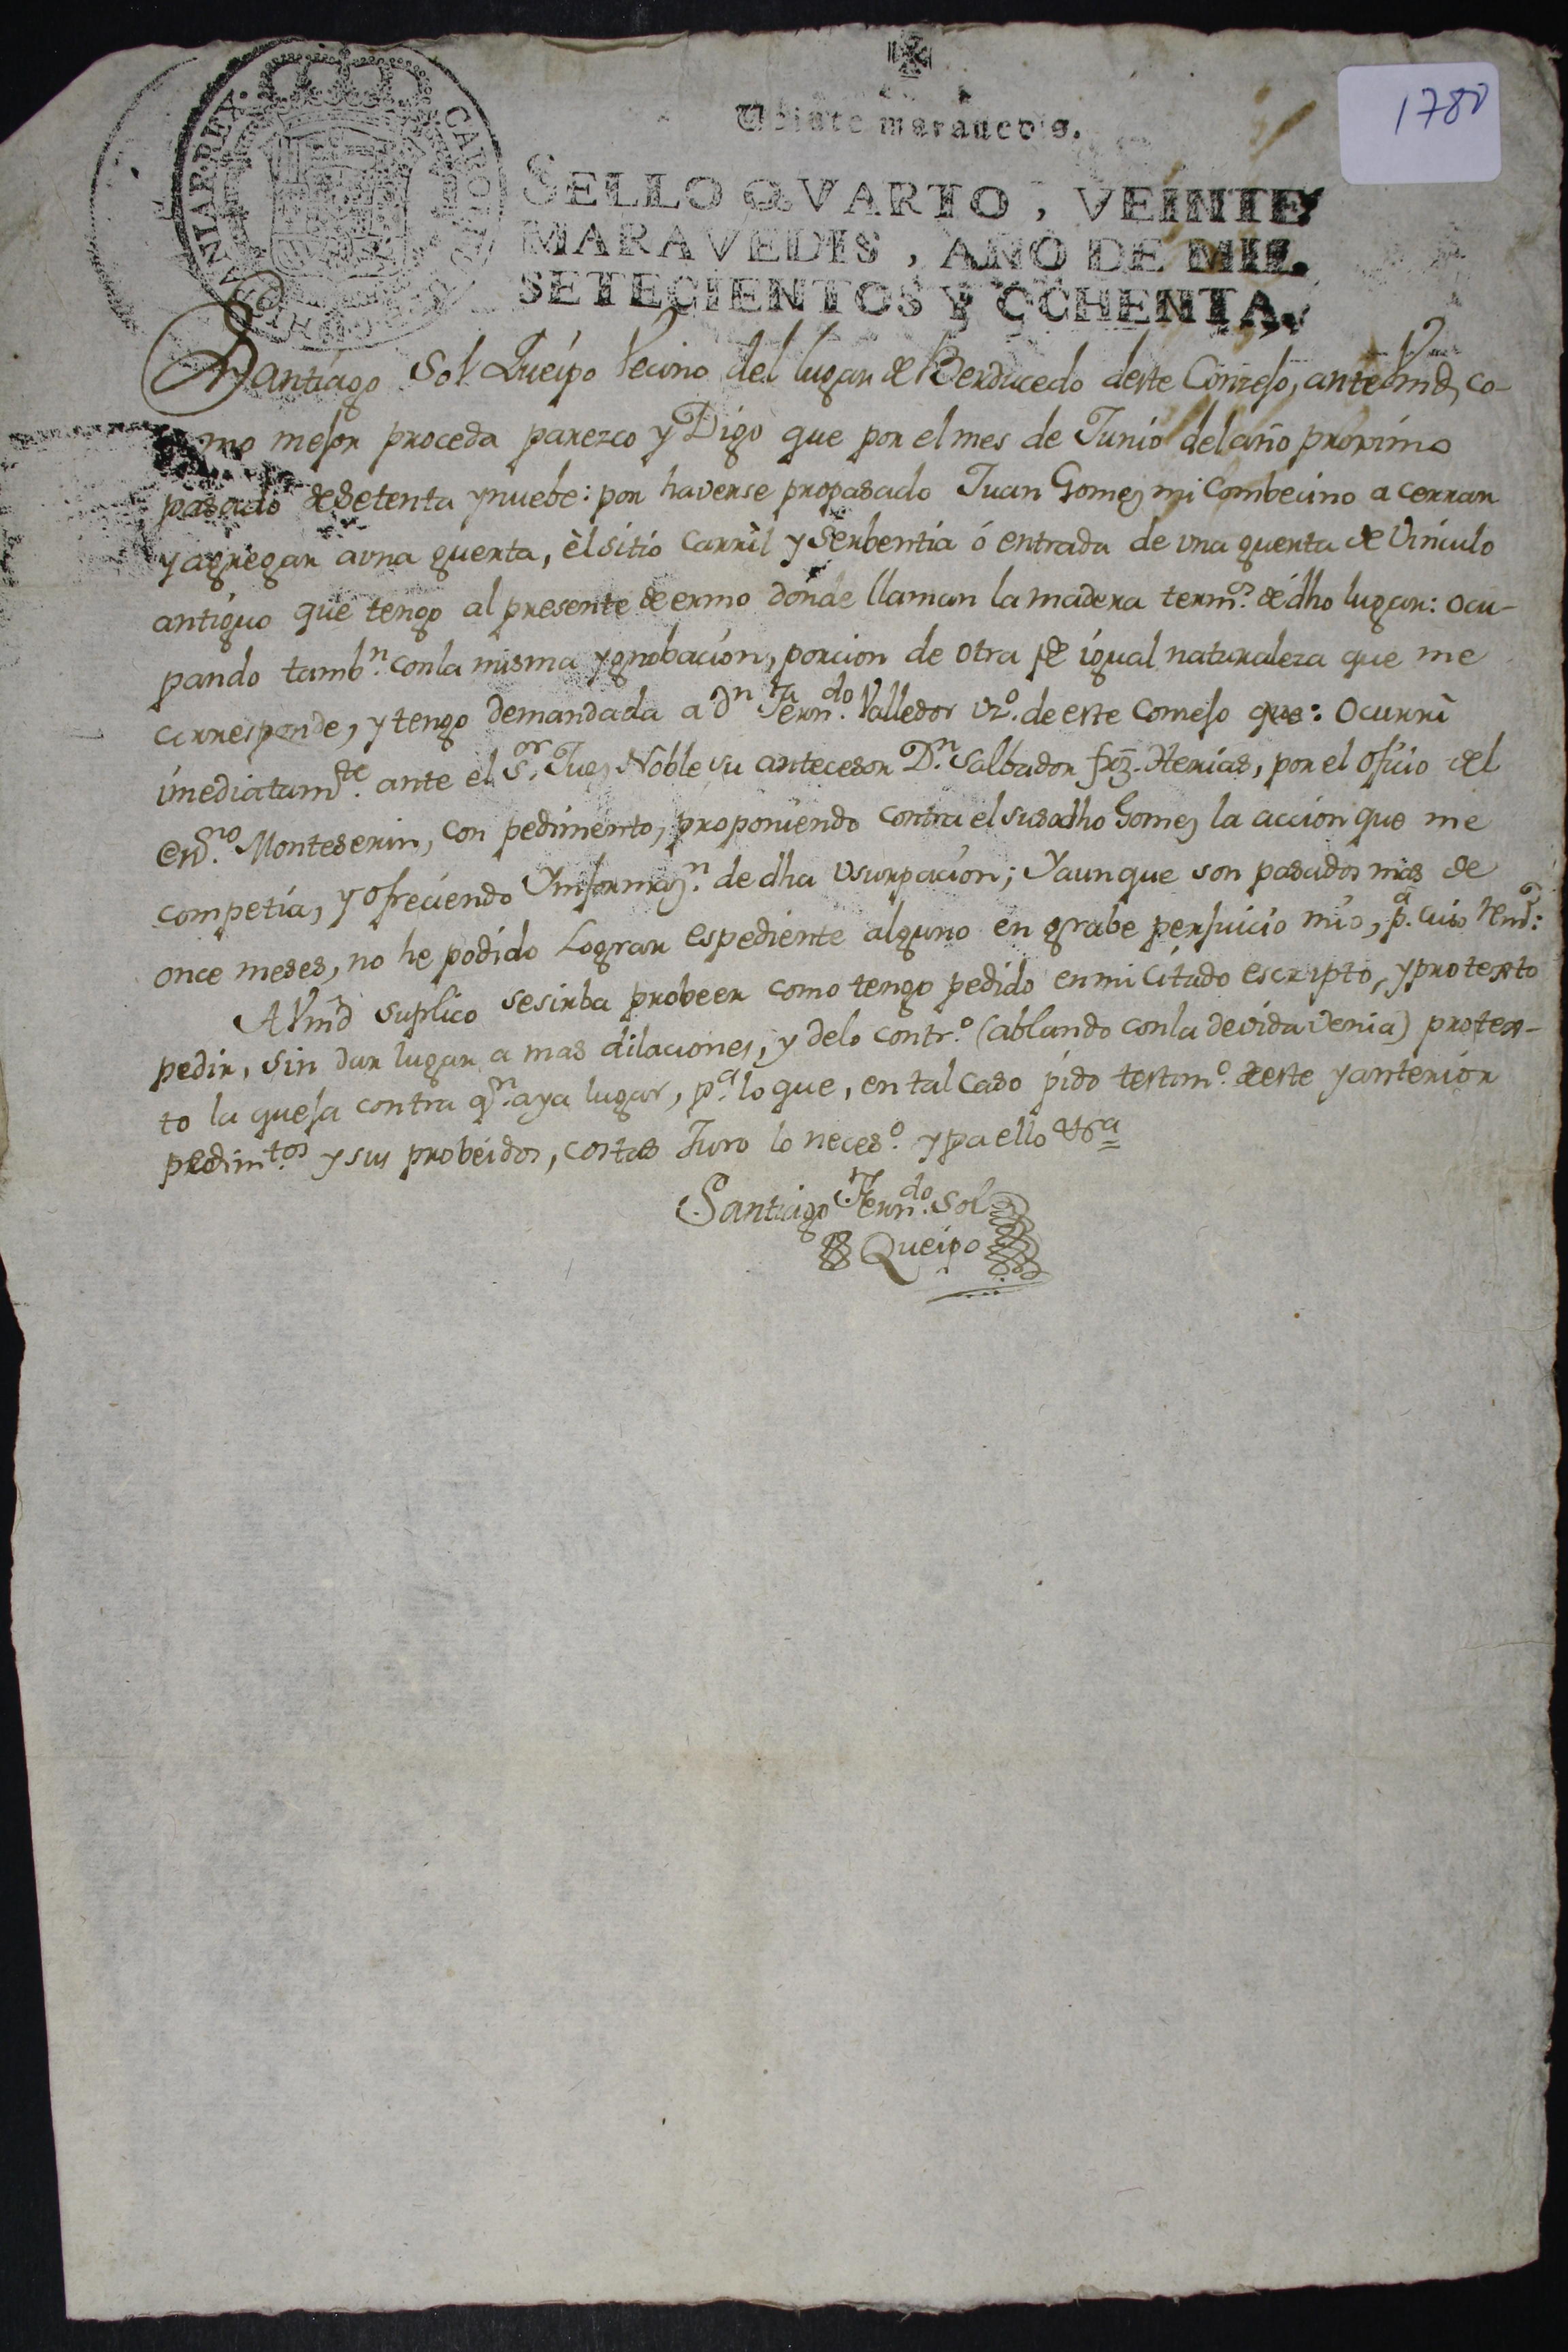 1780
Veinte maravedis.
SELLO QVARTO, VEINTE
MARAVEDIS, AÑO DE MIL
SETECIENTOS Y OCHENTA.
Santiago Sol Queipo Vecino del lugar de Berducedo deste Conzejo, ante Vmd, co-
mo mejor proceda parezco y Digo que por el mes de Junio del año proximo
pasado de setenta y nuebe: por haverse propasado Juan Gomez mi Combecino a cerrar
y agregar a una guerta, èl sitio Carril y Serbentia ó entrada de una guerta de Vinculo
antiguo que tengo al presente de ermo donde llaman la madera termº. de dho lugar: Ocu-
pando tambⁿ. con la misma ygnobacion, porcion de otra de igual naturaleza que me
corresponde, y tengo demandada a Dⁿ Fernᵈᵒ. Valledor vzº. de este Comejo que: Ocurri
imediatamᵗᵉ. ante el Sʳ. Juez Noble su antecesor Dⁿ. Salbador frz. Herias, por el oficio del
esnº. Monteserin, con pedimento, proponiendo contra el susodho Gomez la accion que me
competia, y ofreciendo Ynformazⁿ. de dha Vsurpacion; Y aunque son pasados mas de
once meses, no he podido Lograr espediente alguno en grabe perjuicio mio, pª. cuio remº:
A Vmd suplico se sirba probeer como tengo pedido en mi Citado escripto, y protexto
pedir, sin dar lugar a mas dilaciones, y delo contrº. (ablando con la devida Venia) protex-
to la queja contra qⁿ. aya lugar, pª. lo que, en tal Caso pido testimº. de este y anterior
pedimᵗᵒˢ. y sus probeidos, costas Juro lo necesº. y pa ello &ª
Santiago Fernᵈᵒ. Sol
Queipo